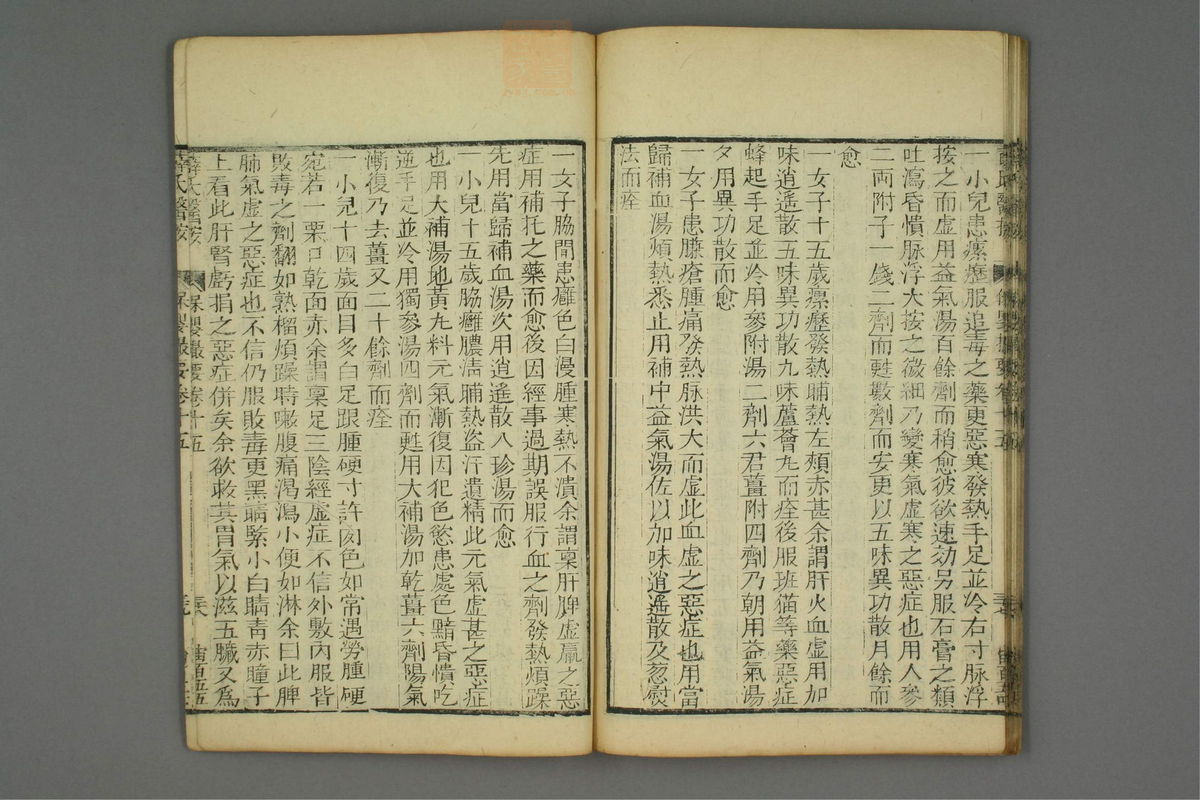 一小兒患瘰癧服追毒之藥更惡寒發熱手足並冷右寸脉浮
按之而虚用益氣湯百餘劑而稍愈彼欲速効另服石膏之類
吐瀉昏憒脉浮大按之微細乃變寒氣虚寒之惡症也用人參
二両附子一錢二劑而甦數劑而安更以五味異功散月餘而
愈
一女子十五歲瘰癧發熱晡熱左頰赤甚余謂肝火血虚用加
味逍遙散五味異功散九味蘆薈丸而痊後服班猫等藥惡症
蜂起手足並冷用參附湯二劑六君薑附四劑乃朝用益氣湯
夕用異功散而愈
一女子患臁瘡腫痛發熱脉洪大而虚此血虚之惡症也用當
歸補血湯煩熱悉止用補中益氣湯佐以加味逍遙散及葱熨
法而痊
一女子脇間患癰色白漫腫寒熱不潰余謂稟肝脾虚羸之惡
症用補托之藥而愈後因經事過期誤服行血之劑發熱煩躁
先用當歸補血湯次用逍遙散八珍湯而愈
一小兒十五歲脇癰膿清晡熱盜汗遺精此元氣虚甚之惡症
也用大補湯地黃丸料元氣漸復因犯色慾患處色黯昏憒吃
逆手足並冷用獨參湯四劑而甦用大補湯加乾薑六劑陽氣
漸復乃去薑又二十餘劑而痊
一小兒十四歲面目多白足跟腫硬寸許肉色如常遇勞腫硬
宛若一栗口乾面赤余謂稟足三陰經虚症不信外敷內服皆
敗毒之劑翻如熟榴煩躁時嗽腹痛渴瀉小便如淋余曰此脾
肺氣虚之惡症也不信仍服敗毒更黑睛緊小白睛青赤瞳子
上看此肝腎虧損之惡症併矣余欲救其胃氣以滋五臟又爲
薛氏醫按
保嬰撮要卷十五